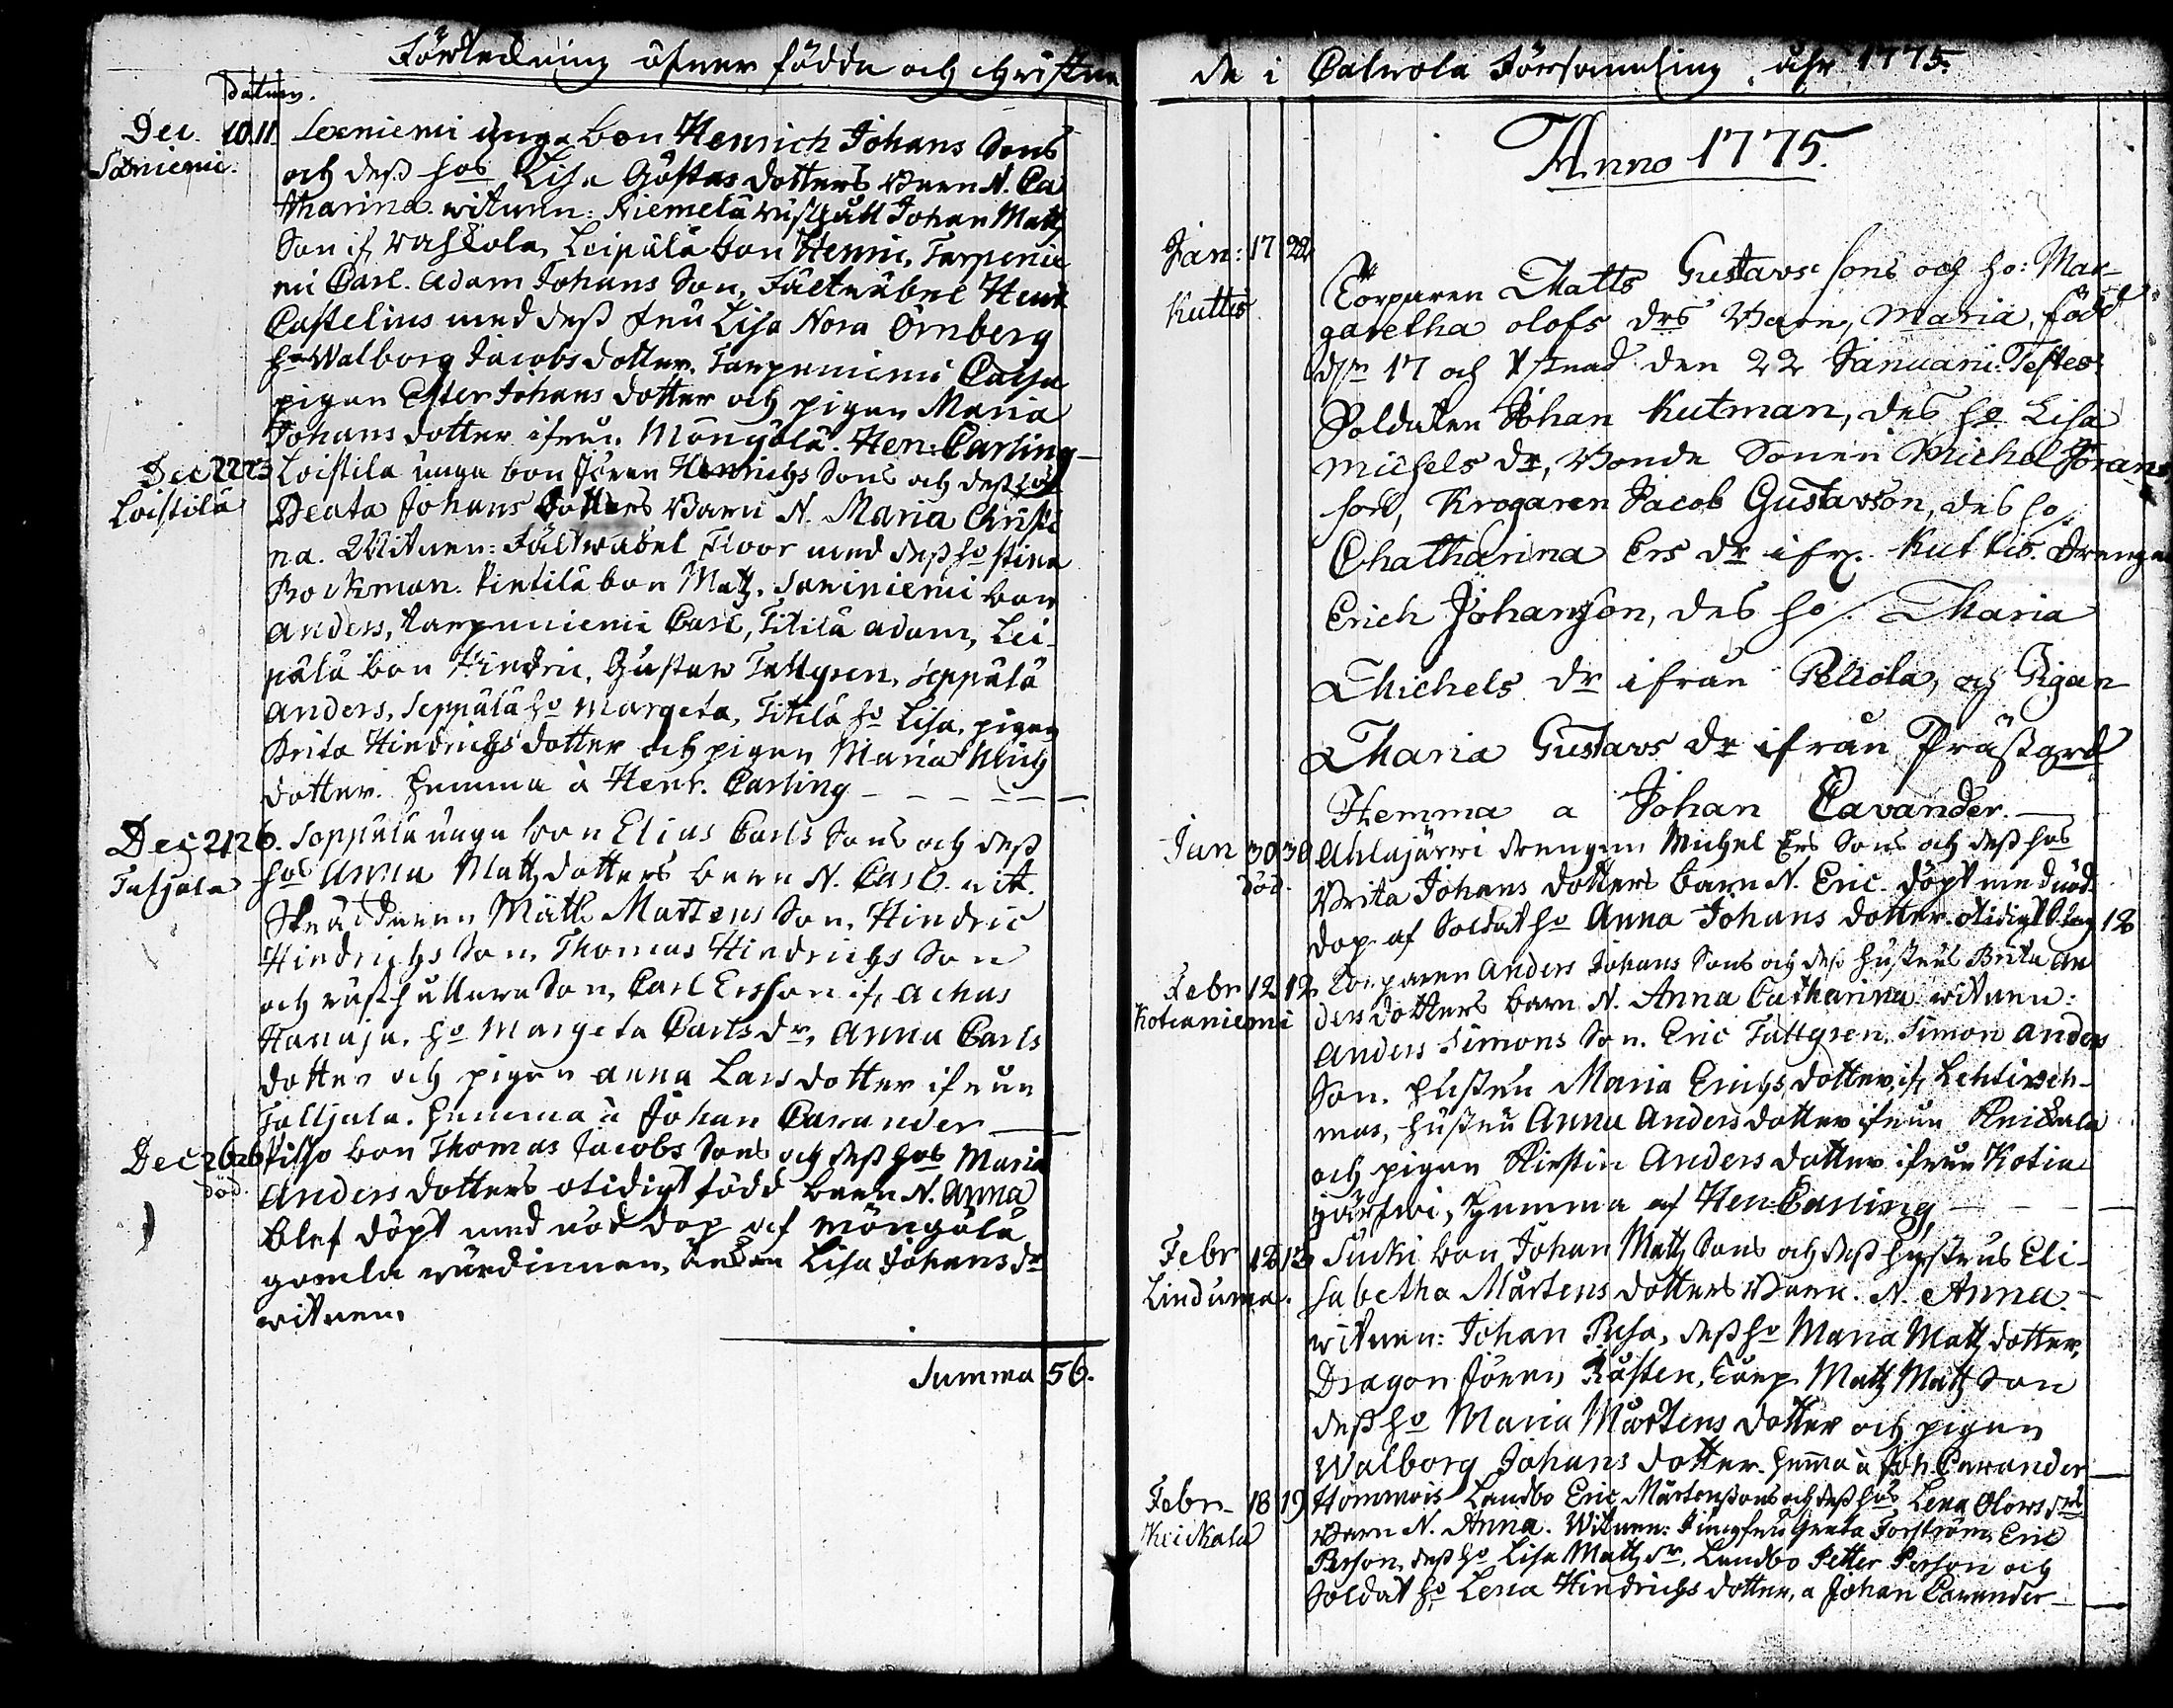 Förteckning öfwer födde och christna
Datum.
Dec. 10. 11. Lexniemi unga bon Henrich Johans Sons
Saxniemi. och deß hos Lisa Göstas dotters Barn N. Ca
tharina. witnen: Niemelä Johan Matz
Son if, Leipälä bon Henric, Tarpenie
mi Carl. Adam Johans Son, Fältwäbel Henr
Castelius med deß fru Lisa Nora Örnberg
ho Walborg Jacobs dotter. Tarpeniemi Caisa
pigan Ester Johans dotter och pigan Maria
Johans dotter ifrån Möngölä. Hen: Carling
Dec 22 23 Loistila unga bon Jöran Henrichs Sons och deß hos
Loistila Beata Johans dotters Barn N. Maria Christi
na. Witnen: Fältwäbel Floor med deß ho Stina
Bockman. Pintilä bon Matz. Saxniemi bon
Anders, Tarpeniemi Carl, Titilä Adam, Lei-
pälä bon Hindric, Gustaw Tallgren, Seppälä
Anders, Seppälä ho Margeta, Titilä ho Lisa, pigan
Brita Hindrichs dotter och pigan Maria
dotter. Hemma à Henr. Carling
Dec 21 26. Seppälä unga bon Elias Carls Sons och deß
Taljala hos Anna Matz dotters barn N. Carl. witt.
Skräddaren Math. Martens Son, Hindric
Hindrichs Son, Thomas Hindrichs Son
och Son, Carl Ersson if, Achas
Hanaja. ho Margeta Carls dr, Anna Carls
dotter och pigan Anna Lars dotter ifrån
Talljala. Hemma à Johan Cavander
Dec 26 26 Pilpo bon Thomas Jacobs Sons och deß hos Maria
död. Anders dotters otidigt född barn N. Anna
blef döpt med nöd dop af Möngölä
gamla wärdinnan, änkan Lisa Johans dr
witnen.
Summa 56.
de i Calvola Församling, åhr 1775.
Anno 1775.
Jan: 17 22
Kuttis Torparen Matts Gustavs sons och ho: Mar-
garetha Olofs drs Barn, Maria, född
den 17 och Xstnad den 22 Januarii. Testes:
Soldaten Johan Kutman, des ho Lisa
Michels dr, Bonde Sonen Michel Jörans
son, Krogaren Jacob Gustavson, des ho
Chatharina Ers dr ifr. Kuttis. Drengen
Erich Johanson, des ho Maria
Michels dr ifrån Pellola, och Pigan
Maria Gustavs dr ifrån Prästgrd
Hemma a Johan Cavander.
Jan 30 30 Ahlajärwi drengen Michel Ers Sons och deß hos
död. Brita Johans dotters barn N. Eric. döpt med nöd
dop af Soldat ho Anna Johans dotter. otidigt 12
Febr 12 12 Torparen Anders Johans Sons och des hustrus Brita An
Kotcaniemi ders dotters barn N. Anna Catharina. witnen:
Anders Simons Son. Eric Tallgren. Simon Anders
Son. Hustru Maria Erichs dotter, if Lehtiweh-
mas, hustru Anna Anders dotter ifrån Keickala
och pigan Kirstin Anders dotter ifrån Kotca
järfwi, Hemma af Hen: Carling,
Febr 12 13 Sucki bon Johan Matz Sons och deß hustrus Eli-
Linduma. sabetha Mårtens dotters Barn. N. Anna.
witnen: Johan Pusa, deß ho Maria Matz dotter,
Dragon Jöran Kåsten, Torp. Matz Matz Son
deß ho Maria Mårtens dotter och pigan
Walborg Johans dotter. hemma à Joh Cavander
Febr. 18 19 Hommois Landbo Eric Mårtensons och deß hos Lena Olows drs
Keickala Barn N. Anna. Witnen: Jungfru Greta Forström, Eric
Person, deß ho Lisa Matz dr, Landbo Petter Person och
Soldat ho Lena Hindrichs dotter, a Johan Cavander